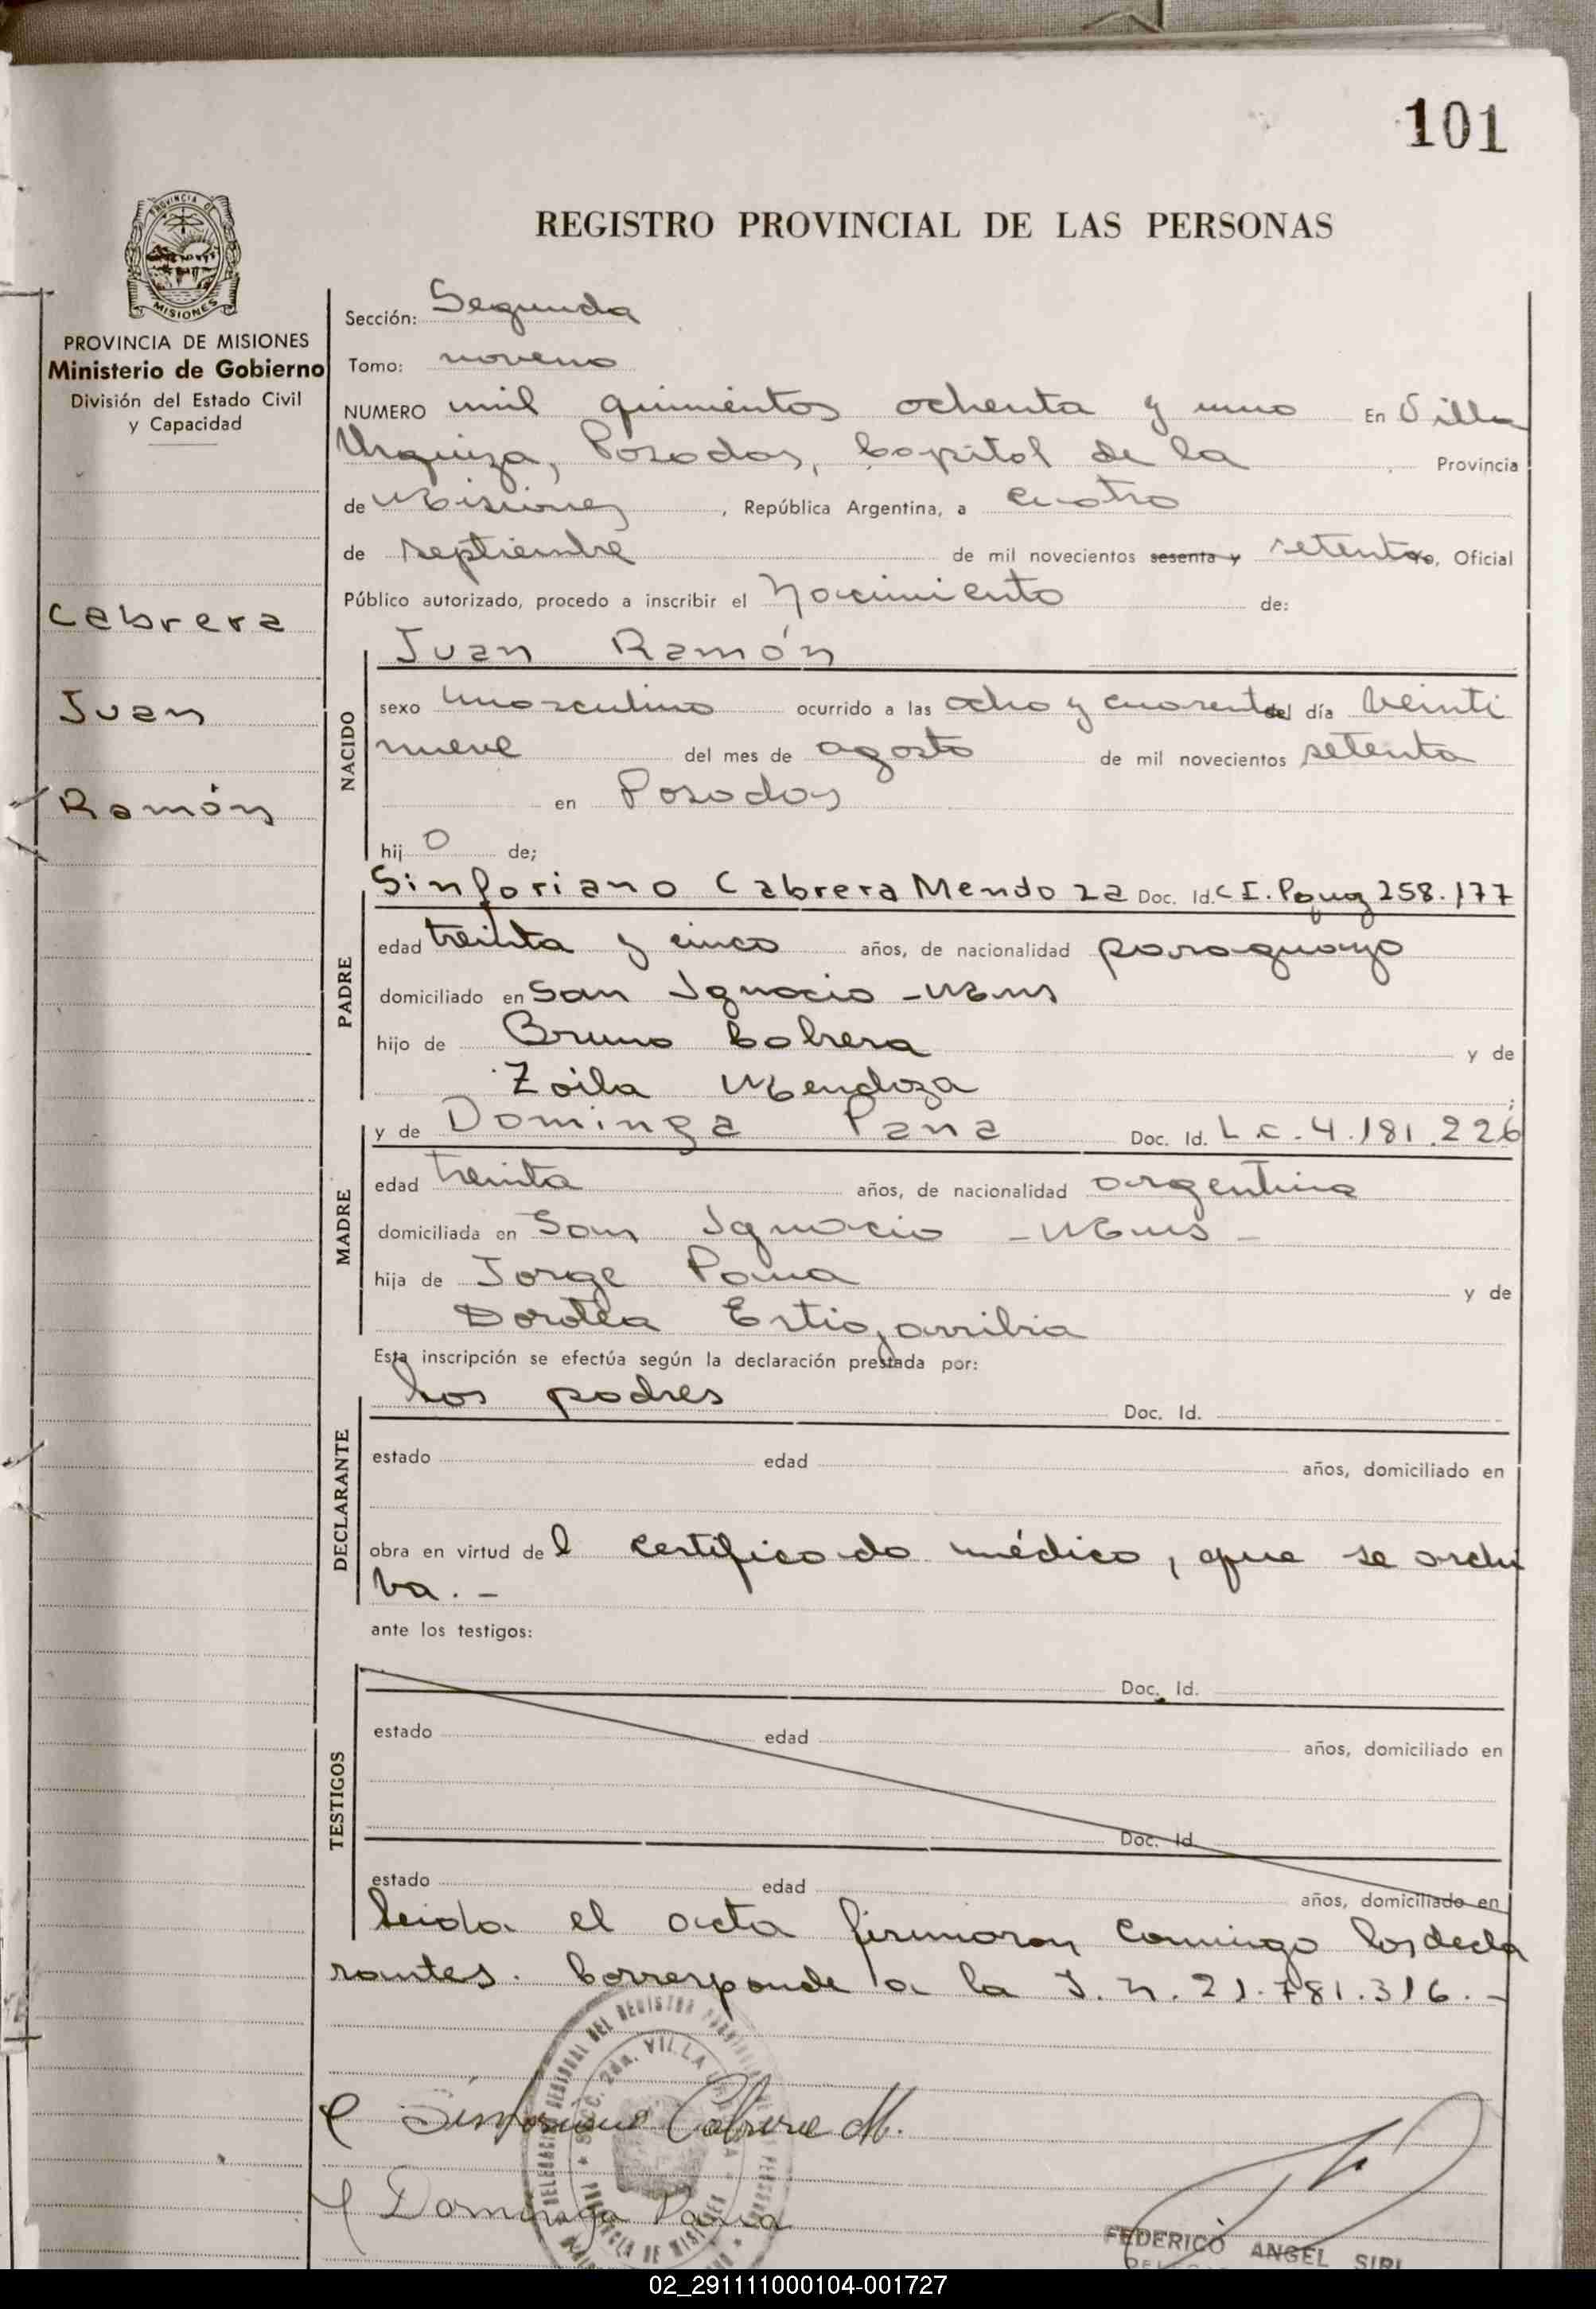 101
REGISTRO PROVINCIAL DE LAS PERSONAS
PROVINCIA DE MISIONES
PROVINCIA DE MISIONES
Ministerio de Gobierno
División del Estado Civil
y Capacidad
Cabrera
Juan
Ramón
Sección: Segunda
Tomo: noveno
NUMERO mil quinientos ochenta y uno En Villa
Urquiza, Posadas, Capital de la Provincia
de Misiones, República Argentina, a cuatro
de septiembre de mil novecientos sesenta y setenta, Oficial
Público autorizado, procedo a inscribir el Nacimiento de:
Juan Ramón
NACIDO
sexo masculino ocurrido a las ocho y cuarenta del día veinti
nueve del mes de agosto de mil novecientos setenta
en Posadas
hij o de;
PADRE
Sinforiano Cabrera Mendoza Doc. Id. C I. Paug 258.177
edad treinta y cinco años, de nacionalidad paraguayo
domiciliado en San Ignacio - Mnes
hijo de Bruno Cabrera y de
Zoila Mendoza;
MADRE
y de Dominga Pana Doc. Id. L c. 4.181.226
edad treinta años, de nacionalidad argentina
domiciliada en San Ignacio - Mnes -
hija de Jorge Pana y de
Dorotea Estigarribia
Esta inscripción se efectúa según la declaración prestada por:
DECLARANTE
los padres Doc. Id.
estado edad años, domiciliado en
obra en virtud de l certificado médico, que se archi
va. -
ante los testigos:
TESTIGOS
Doc. Id.
estado edad años, domiciliado en
Doc. Id
estado edad años, domiciliado en
leida el acta firmaron conmigo los decla
rantes. Corresponde a la I. N. 21.781.316. -
SECC. 2da. VILLA
PROVINCIA DE MISIONES
Sinforiano Cabrera M.
Dominga Pana
FEDERICO ANGEL SIRI
02_291111000104-001727